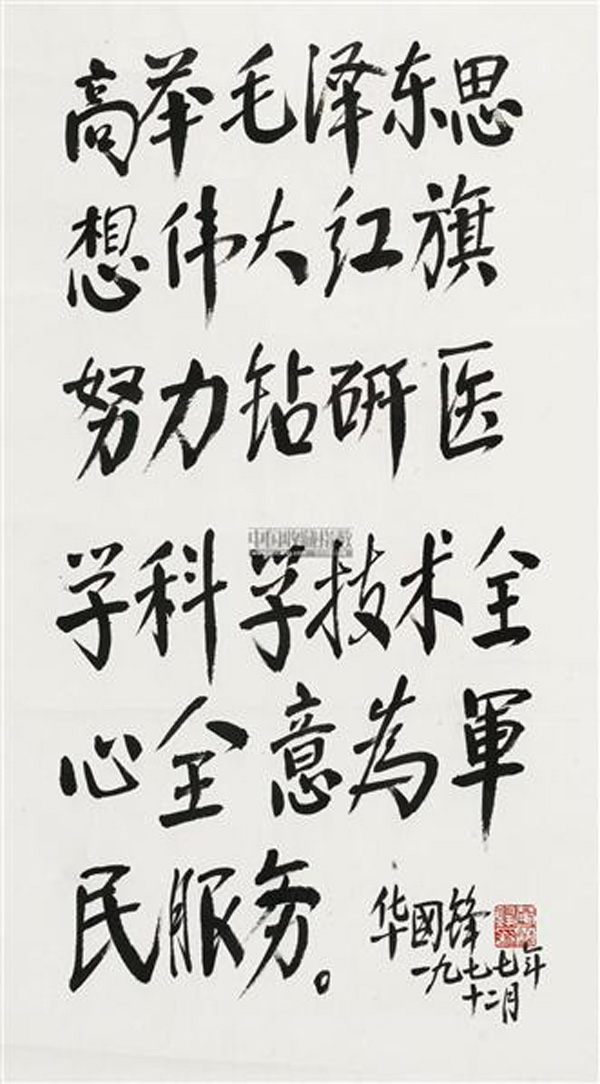 高举毛泽东思
想伟大红旗
努力钻研医
学科学技术全
心全意为軍
民服务。
华國锋
一九七七年
十二月
中国收藏指数